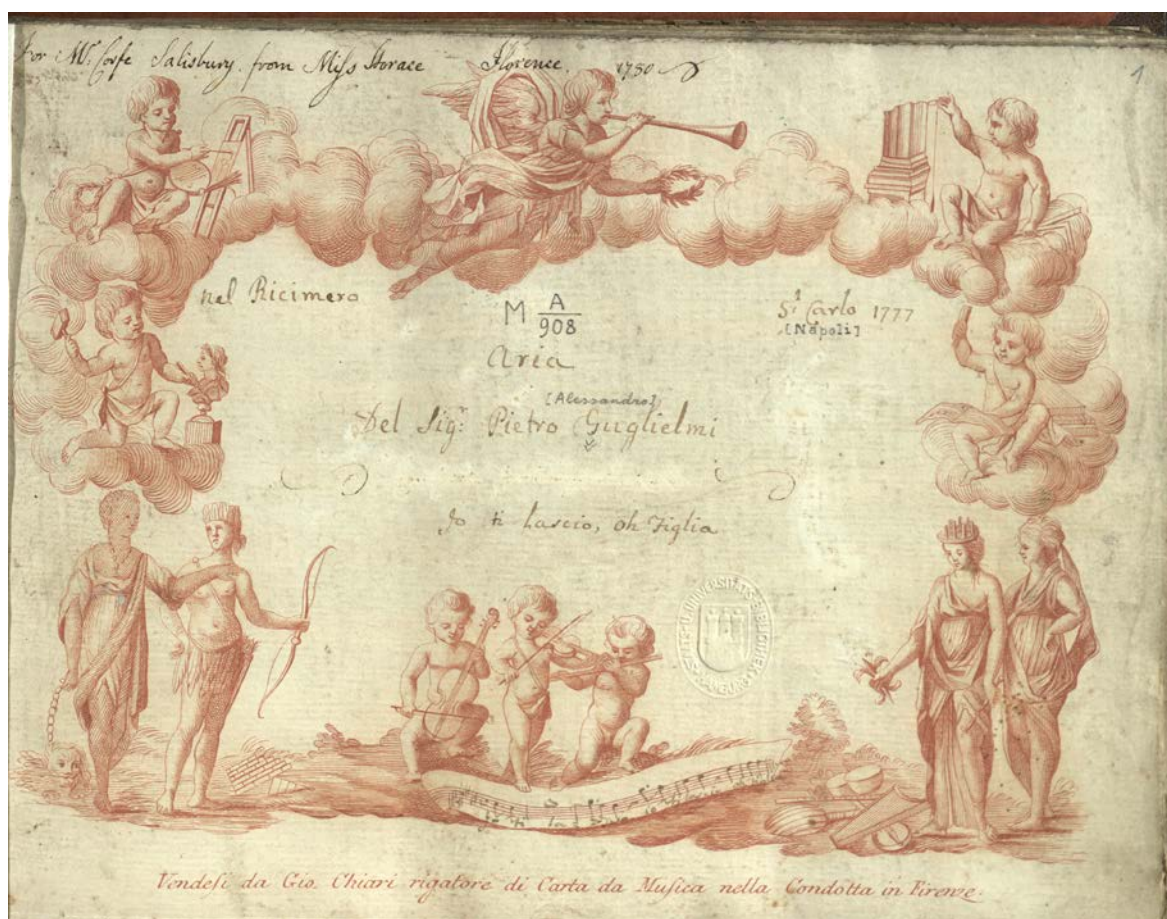 For Mr. Corfe Salisbury. from Miss Storace Florence. 1780
1
nel Ricimero
M A/908
S.t Carlo 1777
[Napoli]
Aria
[Alessandro]
Del Sig.r Pietro Guglielmi
Io ti Lascio, oh Figlia
Vendesi da Gio. Chiari rigatore di Carta da Musica nella Condotta in Firenze.